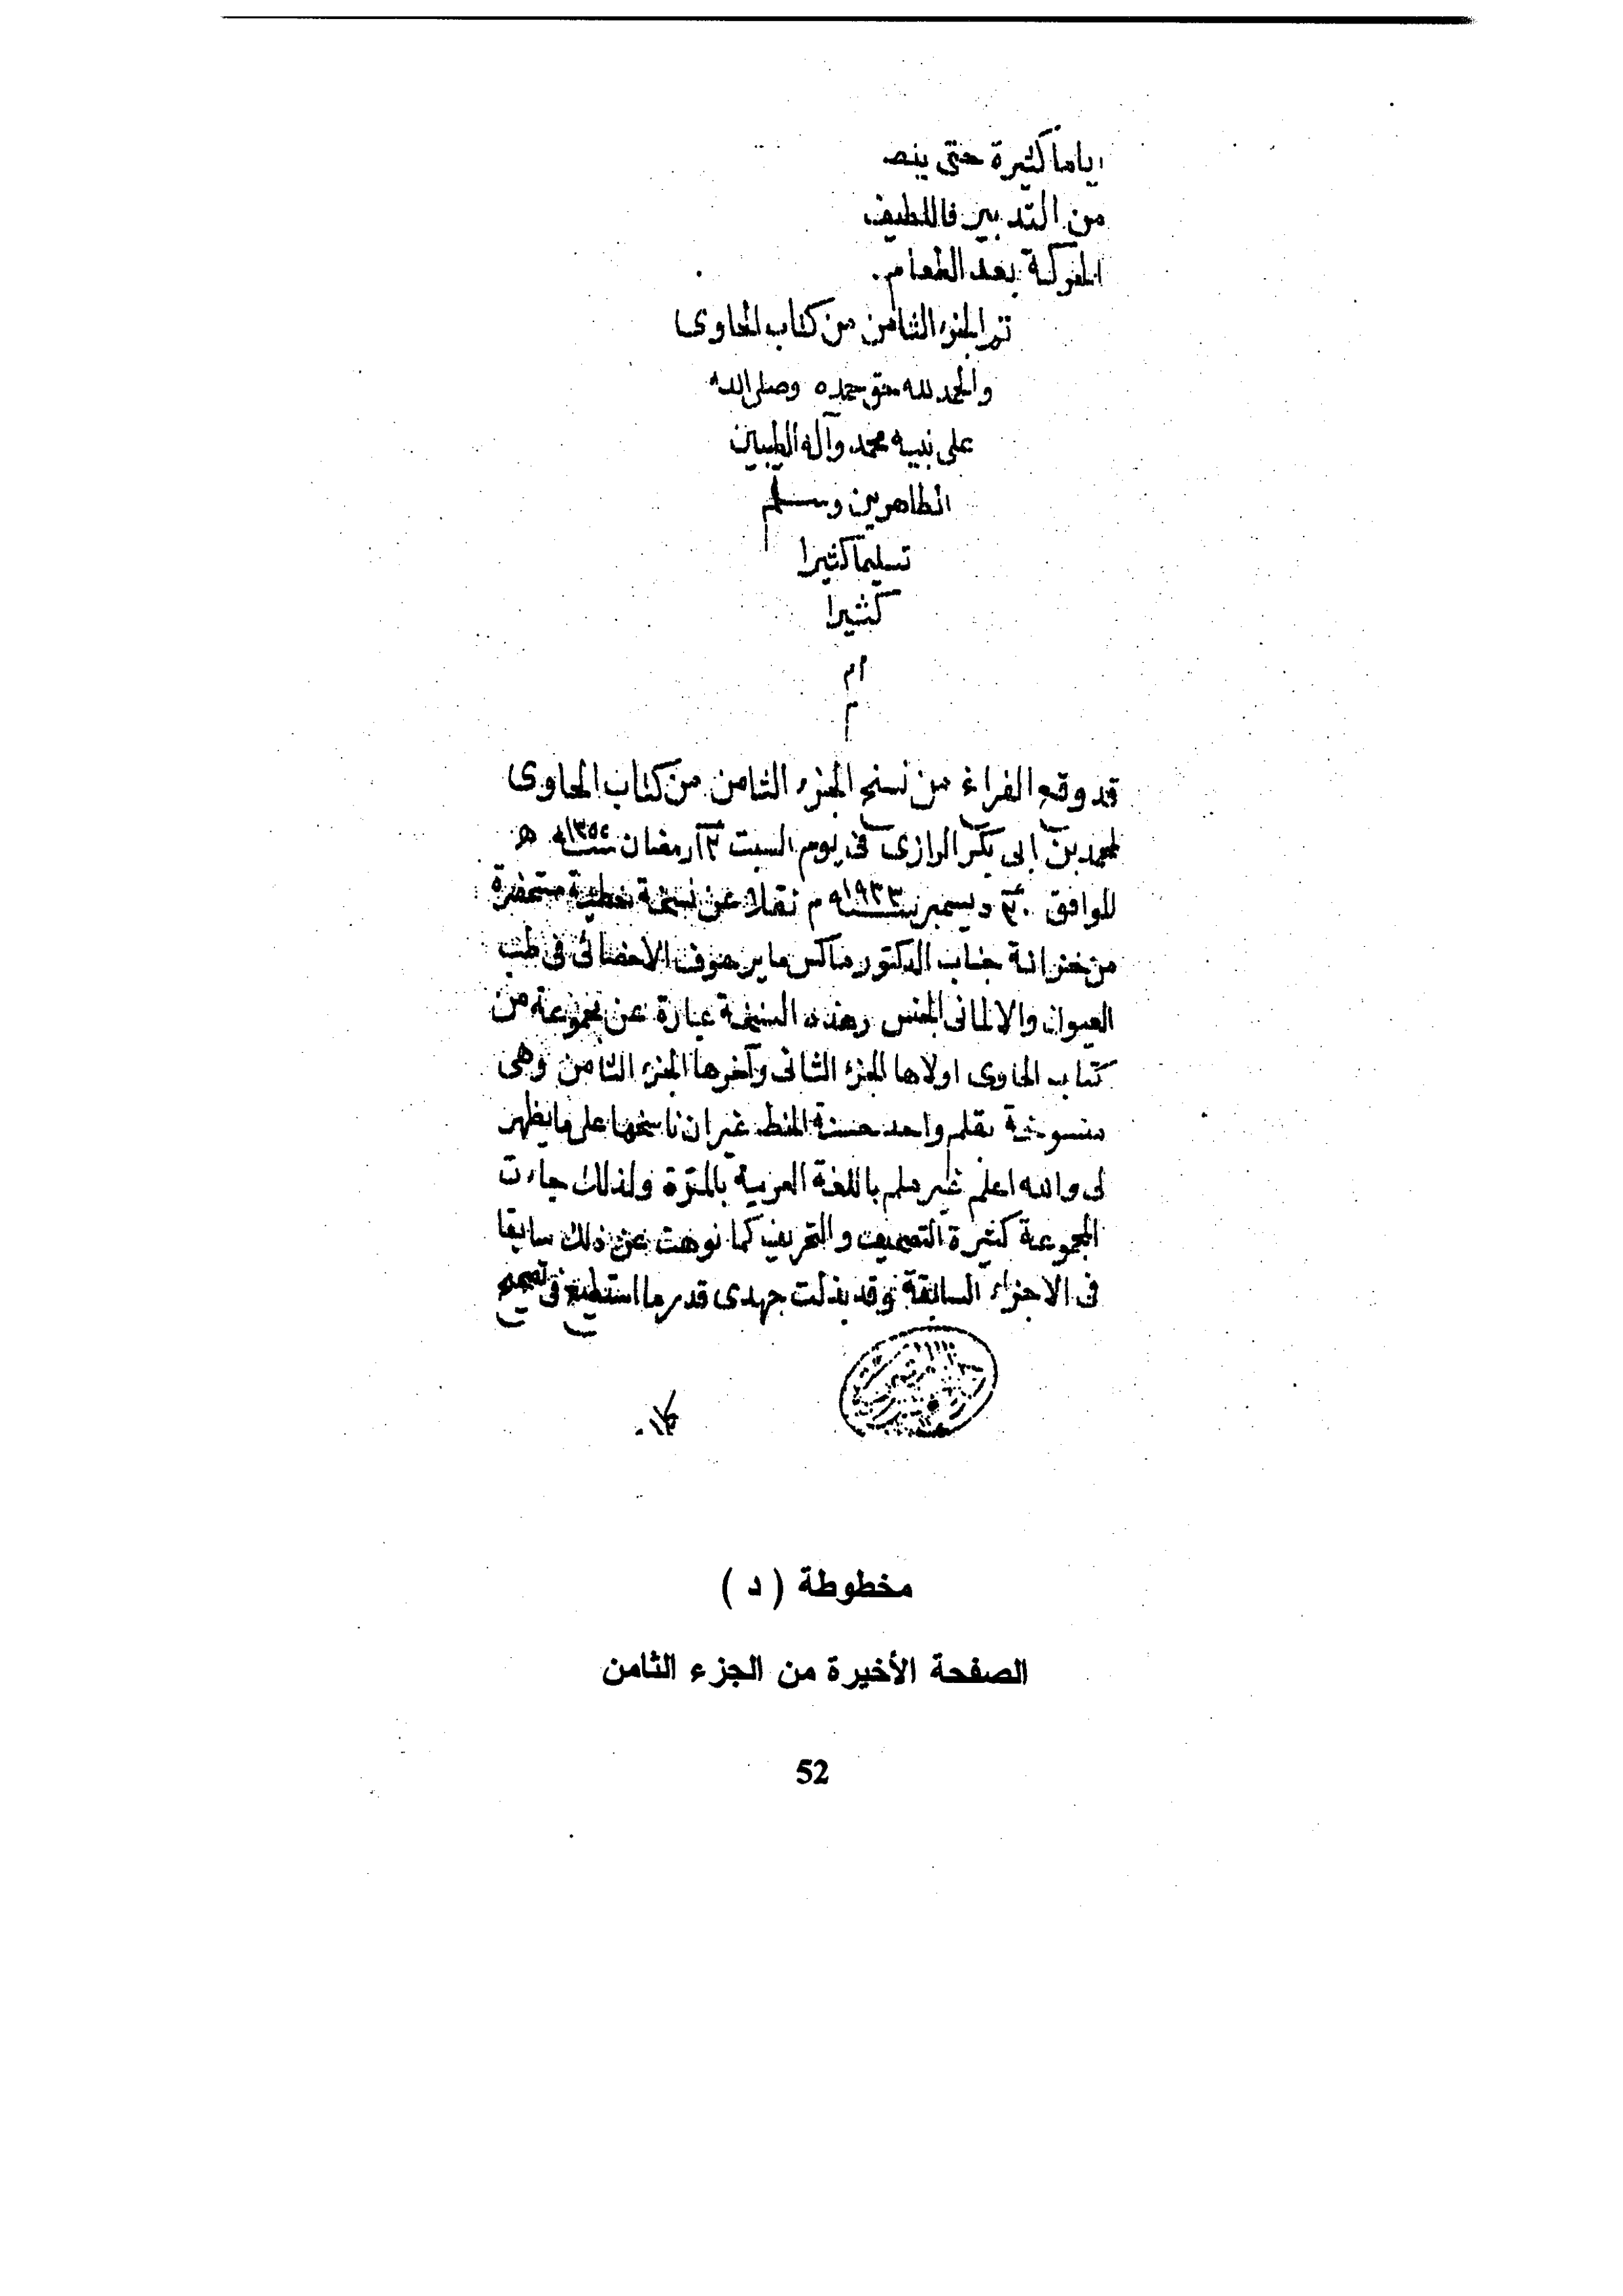 اياما كثيرة حتى ينص
من التدبير فاللطيف
الحركة بعد الطعام.
تم الجزء الثامن من كتاب الحاوى
والحمد لله حق حمده وصلى الله
على نبيه محمد وآله الطيبين
الطاهرين وسلم
تسليما كثيرا
كثيرا
قد وقع الفراغ من نسخ الجزء الثامن من كتاب الحاوى
لمحمد بن ابى بكر الرازى فى يوم السبت رمضان سنة ١٣٥٢ ه
الموافق ٣٠ ديسمبر سنة ١٩٣٣ م نقلا عن نسخة خطية مستحضرة
من خزانة جناب الدكتور ماكس مايرهوف الاخصائى فى طب
العيون والالمانى الجنس وهذه النسخة عبارة عن مجموعة من
كتاب الحاوى اولاها الجزء الثانى وآخرها الجزء الثامن وهى
منسوخة بقلم واحد حسنة الخط غير ان ناسخها على ما يظهر
لى والله اعلم غير ملم باللغة العربية بالمرة ولذلك جاءت
المجموعة كثيرة التصحيف والتحريف كما نوهت عن ذلك سابقا
فى الاجزاء السابقة وقد بذلت جهدى قدر ما استطيع فى تصحيح
مخطوطة ( د )
الصفحة الأخيرة من الجزء الثامن
52